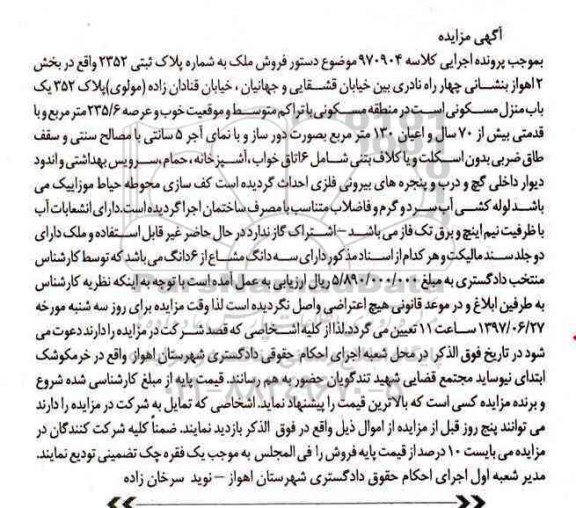 آگهی مزایده
بموجب پرونده اجرایی کلاسه ۹۷۰۹۰۴ موضوع دستور فروش ملک به شماره پلاک ثبتی ۲۳۵۲ واقع در بخش
۲ اهواز بنشانی چهار راه نادری بین خیابان قشقایی و جهانیان، خیابان قنادان زاده (مولوی) پلاک ۳۵۲ یک
باب منزل مسکونی است در منطقه مسکونی با تراکم متوسط و موقعیت خوب و عرصه ۲۳۵/۶ متر مربع و با
قدمتی بیش از ۷۰ سال و اعیان ۱۳۰ متر مربع بصورت دور ساز و با نمای آجر ۵ سانتی با مصالح سنتی و سقف
طاق ضربی بدون اسکلت و یا کلاف بتنی شامل ۶ اتاق خواب، آشپزخانه، حمام، سرویس بهداشتی و اندود
دیوار داخلی گچ و درب و پنجره های بیرونی فلزی احداث گردیده است کف سازی محوطه حیاط موزاییک می
باشد لوله کشی آب سرد و گرم و فاضلاب متناسب با مصرف ساختمان اجرا گردیده است. دارای انشعابات آب
با ظرفیت نیم اینچ و برق تک فاز می باشد – اشتراک گاز ندارد در حال حاضر غیر قابل استفاده و ملک دارای
دو جلد سند مالکیت و هر کدام از اسناد مذکور دارای سه دانگ مشاع از ۶ دانگ می باشد که توسط کارشناس
منتخب دادگستری به مبلغ ۵/۸۹۰/۰۰۰/۰۰۰ ریال ارزیابی به عمل آمده است با توجه به اینکه نظریه کارشناس
به طرفین ابلاغ و در موعد قانونی هیچ اعتراضی واصل نگردیده است لذا وقت مزایده برای روز سه شنبه مورخه
۱۳۹۷/۰۶/۲۷ ساعت ۱۱ تعیین می گردد. لذا از کلیه اشخاصی که قصد شرکت در مزایده را دارند دعوت می
شود در تاریخ فوق الذکر در محل شعبه اجرای احکام حقوقی دادگستری شهرستان اهواز واقع در خرمکوشک
ابتدای نیوساید مجتمع قضایی شهید تندگویان حضور به هم رسانند. قیمت پایه از مبلغ کارشناسی شده شروع
و برنده مزایده کسی است که بالاترین قیمت را پیشنهاد نماید. اشخاصی که تمایل به شرکت در مزایده را دارند
می توانند پنج روز قبل از مزایده از اموال ذیل واقع در فوق الذکر بازدید نمایند. ضمنا کلیه شرکت کنندگان در
مزایده می بایست ۱۰ درصد از قیمت پایه فروش را فی المجلس به موجب یک فقره چک تضمینی تودیع نمایند.
مدیر شعبه اول اجرای احکام حقوق دادگستری شهرستان اهواز – نوید سرخان زاده